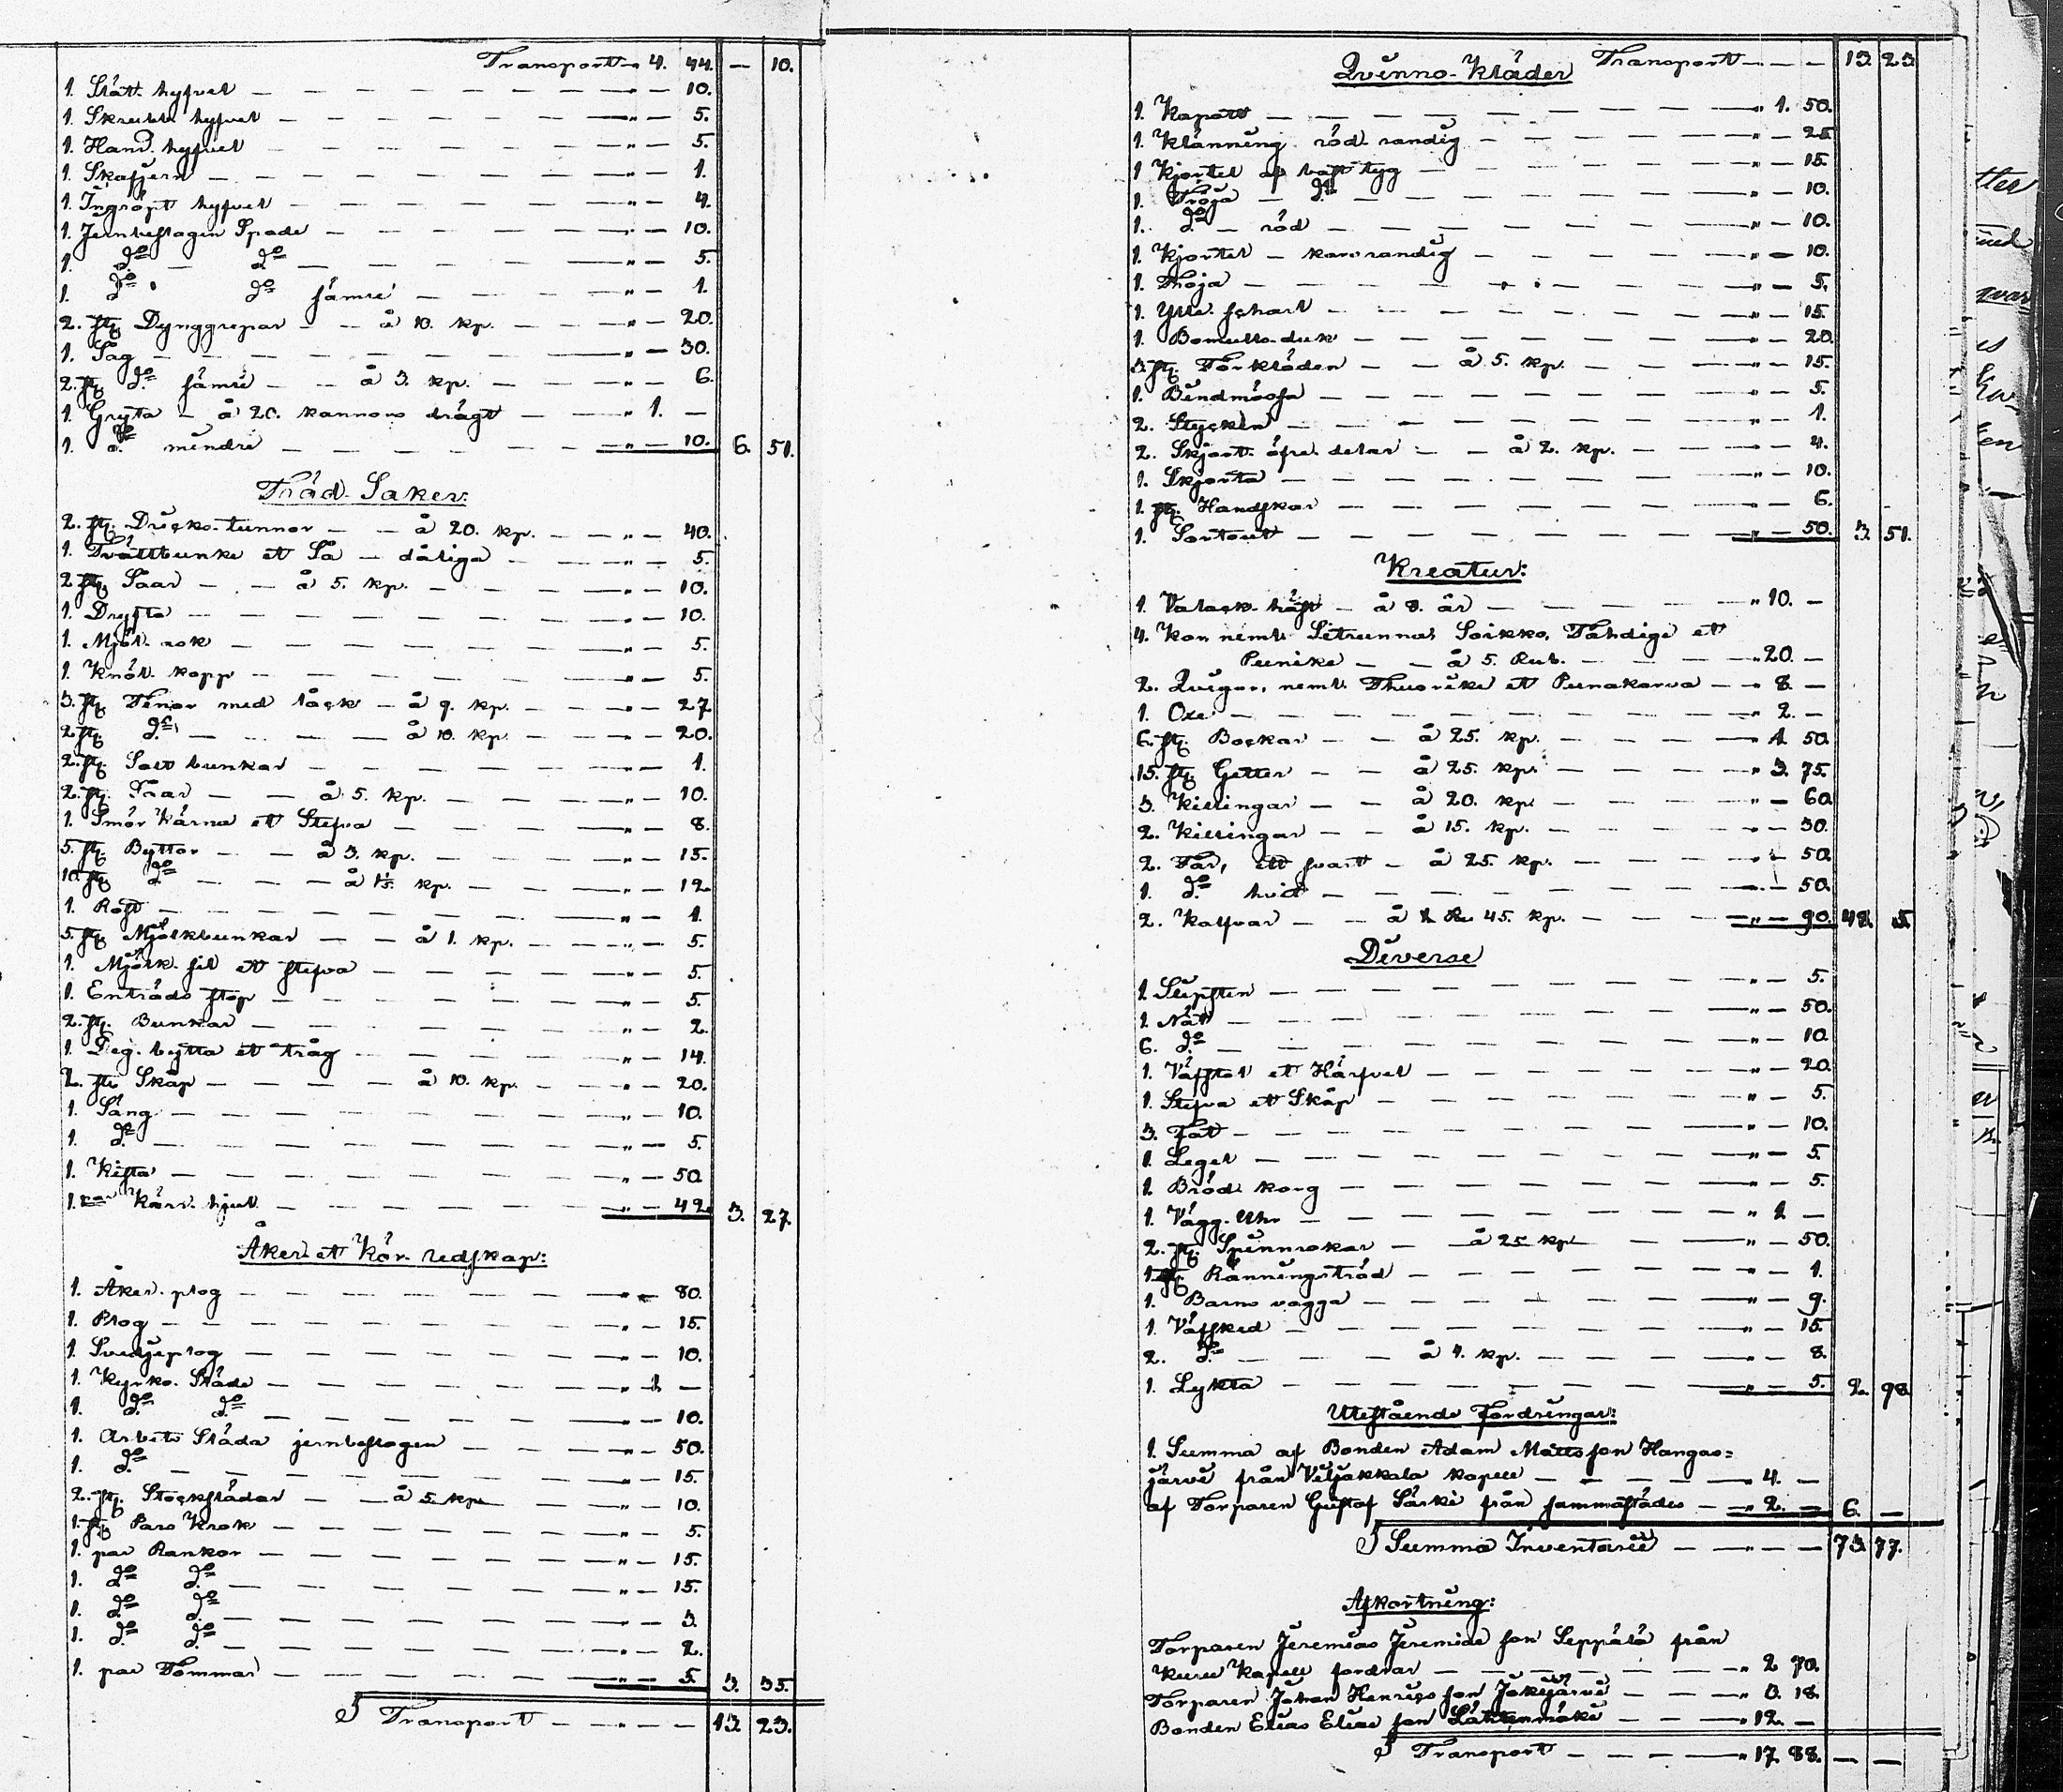 Transport 4. 44. — 10.
1. Slätt hyfvel — — 10.
1. Skrubb hyfvel — — 5.
1. Hand hyfvel — — 5.
1. Skafjern — — 1.
1. Ingröpt hyfvel — — 4.
1. Jernbeslagen Spade — — 10.
1. do — do — — 5.
1. do do sämre — — 1.
2. st. Dynggrepar — — à 10. kp. — — 20.
1. Såg — — 30.
2. st. do sämre — — à 3. kp. — — 6.
1. Gryta — à 20. kannors drägt — — 1. —
1. do mindre — — 10. 6. 51.
Träd-Saker:
2. st. Dricks-tunnor — — à 20. kp. — — 40.
1. Tvättbunke et Så — dåliga — — 5.
2. st. Såar — — à 5. kp. — — 10.
1. Dryfta — — 10.
1. Mjöl. — — 5.
1. kopp — — 5.
3. st. Tinor med låck — à 9. kp. — — 27
2. st. do — — à 10. kp. — — 20.
2. st. Salt bunkar — — 1.
2. st. Såar — — à 5. kp. — — 10.
1. Smör kärna et Stefva — — 8.
5. st. Byttor — — à 3. kp. — — 15.
10. st. do — — à kp. — — 12
1. — — 1.
5. st. Mjölkbunkar — — à 1. kp. — — 5.
1. Mjölk. sil et stefva — — 5.
1. Enträds stop — — 5.
2. st. Bunkar — — 2.
1. Deg. bytta et tråg — — 14.
2. st. Skåp — — à 10. kp. — — 20.
1. Säng — — 10.
1. do — — 5.
1. Kista — — 50
1. par Kärr. hjul — — 42. 3. 27.
Åker et Kör. redskap:
1. Åker. plog — — 80.
1. Plog — — 15.
1. Svedjeplog — — 10.
1. Kyrko. Släde — — 1 —
1. do do — — 10.
1. Arbets Släda jernbeslagen — — 50.
1. do — — 15.
2. st. Stockslädar — — à 5 kp — — 10.
1. st. Pars Krok — — 5.
1. par Rankor — — 15.
1. do do — — 15.
1. do do — — 3.
1. do do — — 2.
1. par Tömmar — — 5. 3. 35.
S Transport — — 13 23.
Qvinno-Kläder Transport — — 13. 23.
1. Kapott — — 1. 50.
1. Klänning röd. randig — — 25
1 Kjortel af tyg — — 15.
1. Tröja — do — — 10.
1. do — röd — — 10.
1. Kjortel — randig — — 10.
1. Tröja — — 5.
1. Ylle. scharl — — 15.
1. Bomulls-duk — — 20.
3. st. Förkläden — — à 5. kp. — — 15.
1. Bindmössa — — 5.
2. Stycken — — 1.
2. Skjort. öfre. delar — — à 2. kp. — — 4.
1. Skjorta — — 10.
1. Handskar — — 6.
1. Sortout — — 50. 3. 51.
Kreatur:
1. Valack. häst — à 8. år — — 10. —
4. Kor neml. Sitrunna, Soikko, Tähdige et
Punike — — à 5. Rub. — — 20. —
2. Qvigor, neml. Thuorike et Punakorva — — 8. —
1. Oxe — — 2. —
6. st. Bockar — — à 25. kp. — — 1 50
15. st. Getter — — à 25. kp. — — 3. 75.
3. Killingar — — à 20. kp — — 60
2. Killingar — — à 15. kp. — — 30.
2. Får, ett svart — à 25 kp. — — 50.
1. do hvit — — 50.
2. Kalfvar — — à 45. kp. — — 90. 48. 5.
Diverse
1. Slipsten — — 5.
1. Nät — — 50.
6. do — — 10.
1. Väfstol et Härfvel — — 20.
1. Stefva et Skåp — — 5.
3. Fat — — 10.
1. Legel — — 5.
1. Bröd. korg — — 5.
1. Vägg. Uhr — — 1 —
2. st. Spinnrokar — — à 25 kp — — 50.
1 Ränningsträd — — 1.
1. Barns vagga — — 9.
1. Väfsked — — 15.
2. do — — à 4. kp. — — 8.
1. Lykta — — 5. 2. 98
Utestående fordringar:
1. Summa af Bonden Adam Mattsson Hangas=
järvi från Viljakkala Kapell — — 4. —
af Torparen Gustaf Särki från sammastädes — — 2. — 6. —
S Summa Inventarii — — 73. 77.
Afkortning:
Torparen Jeremias Jeremias son Seppälä från
Kuru Kapell fordrar — — 2 70.
Torparen Johan Henrics son — — 3. 18.
Bonden Elias Elias son — — 12. —
S Transport — — 17. 88. — —